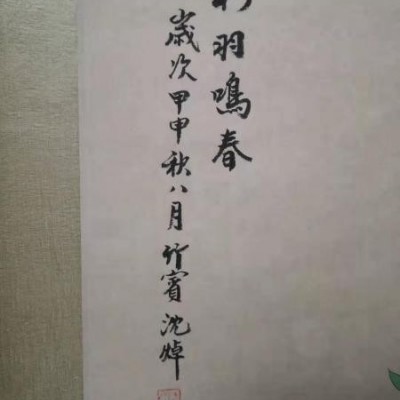 羽鳴春
歲次甲申秋八月竹賓沈焯